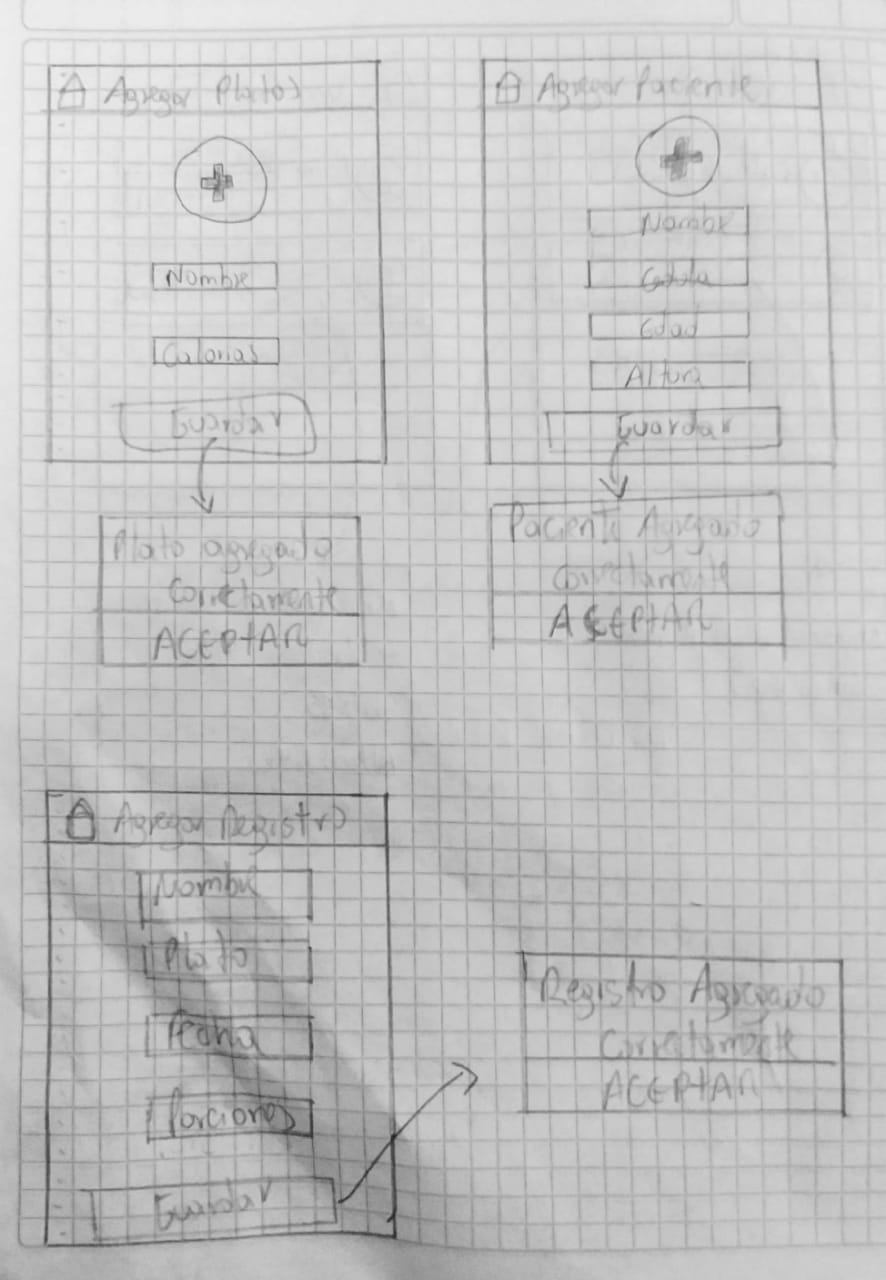 Agregar Platos
Nombre
Calorias
Guardar
Plato agregado
Correctamente
ACEPtAR
Agregar Paciente
Nombre
Cedula
Edad
Altura
Guardar
Paciente Agregado
Correctamente
ACEPtAR
Agregar Registro
Nombre
Plato
Fecha
Porciones
Guardar
Registro Agregado
Correctamente
ACEPtAR